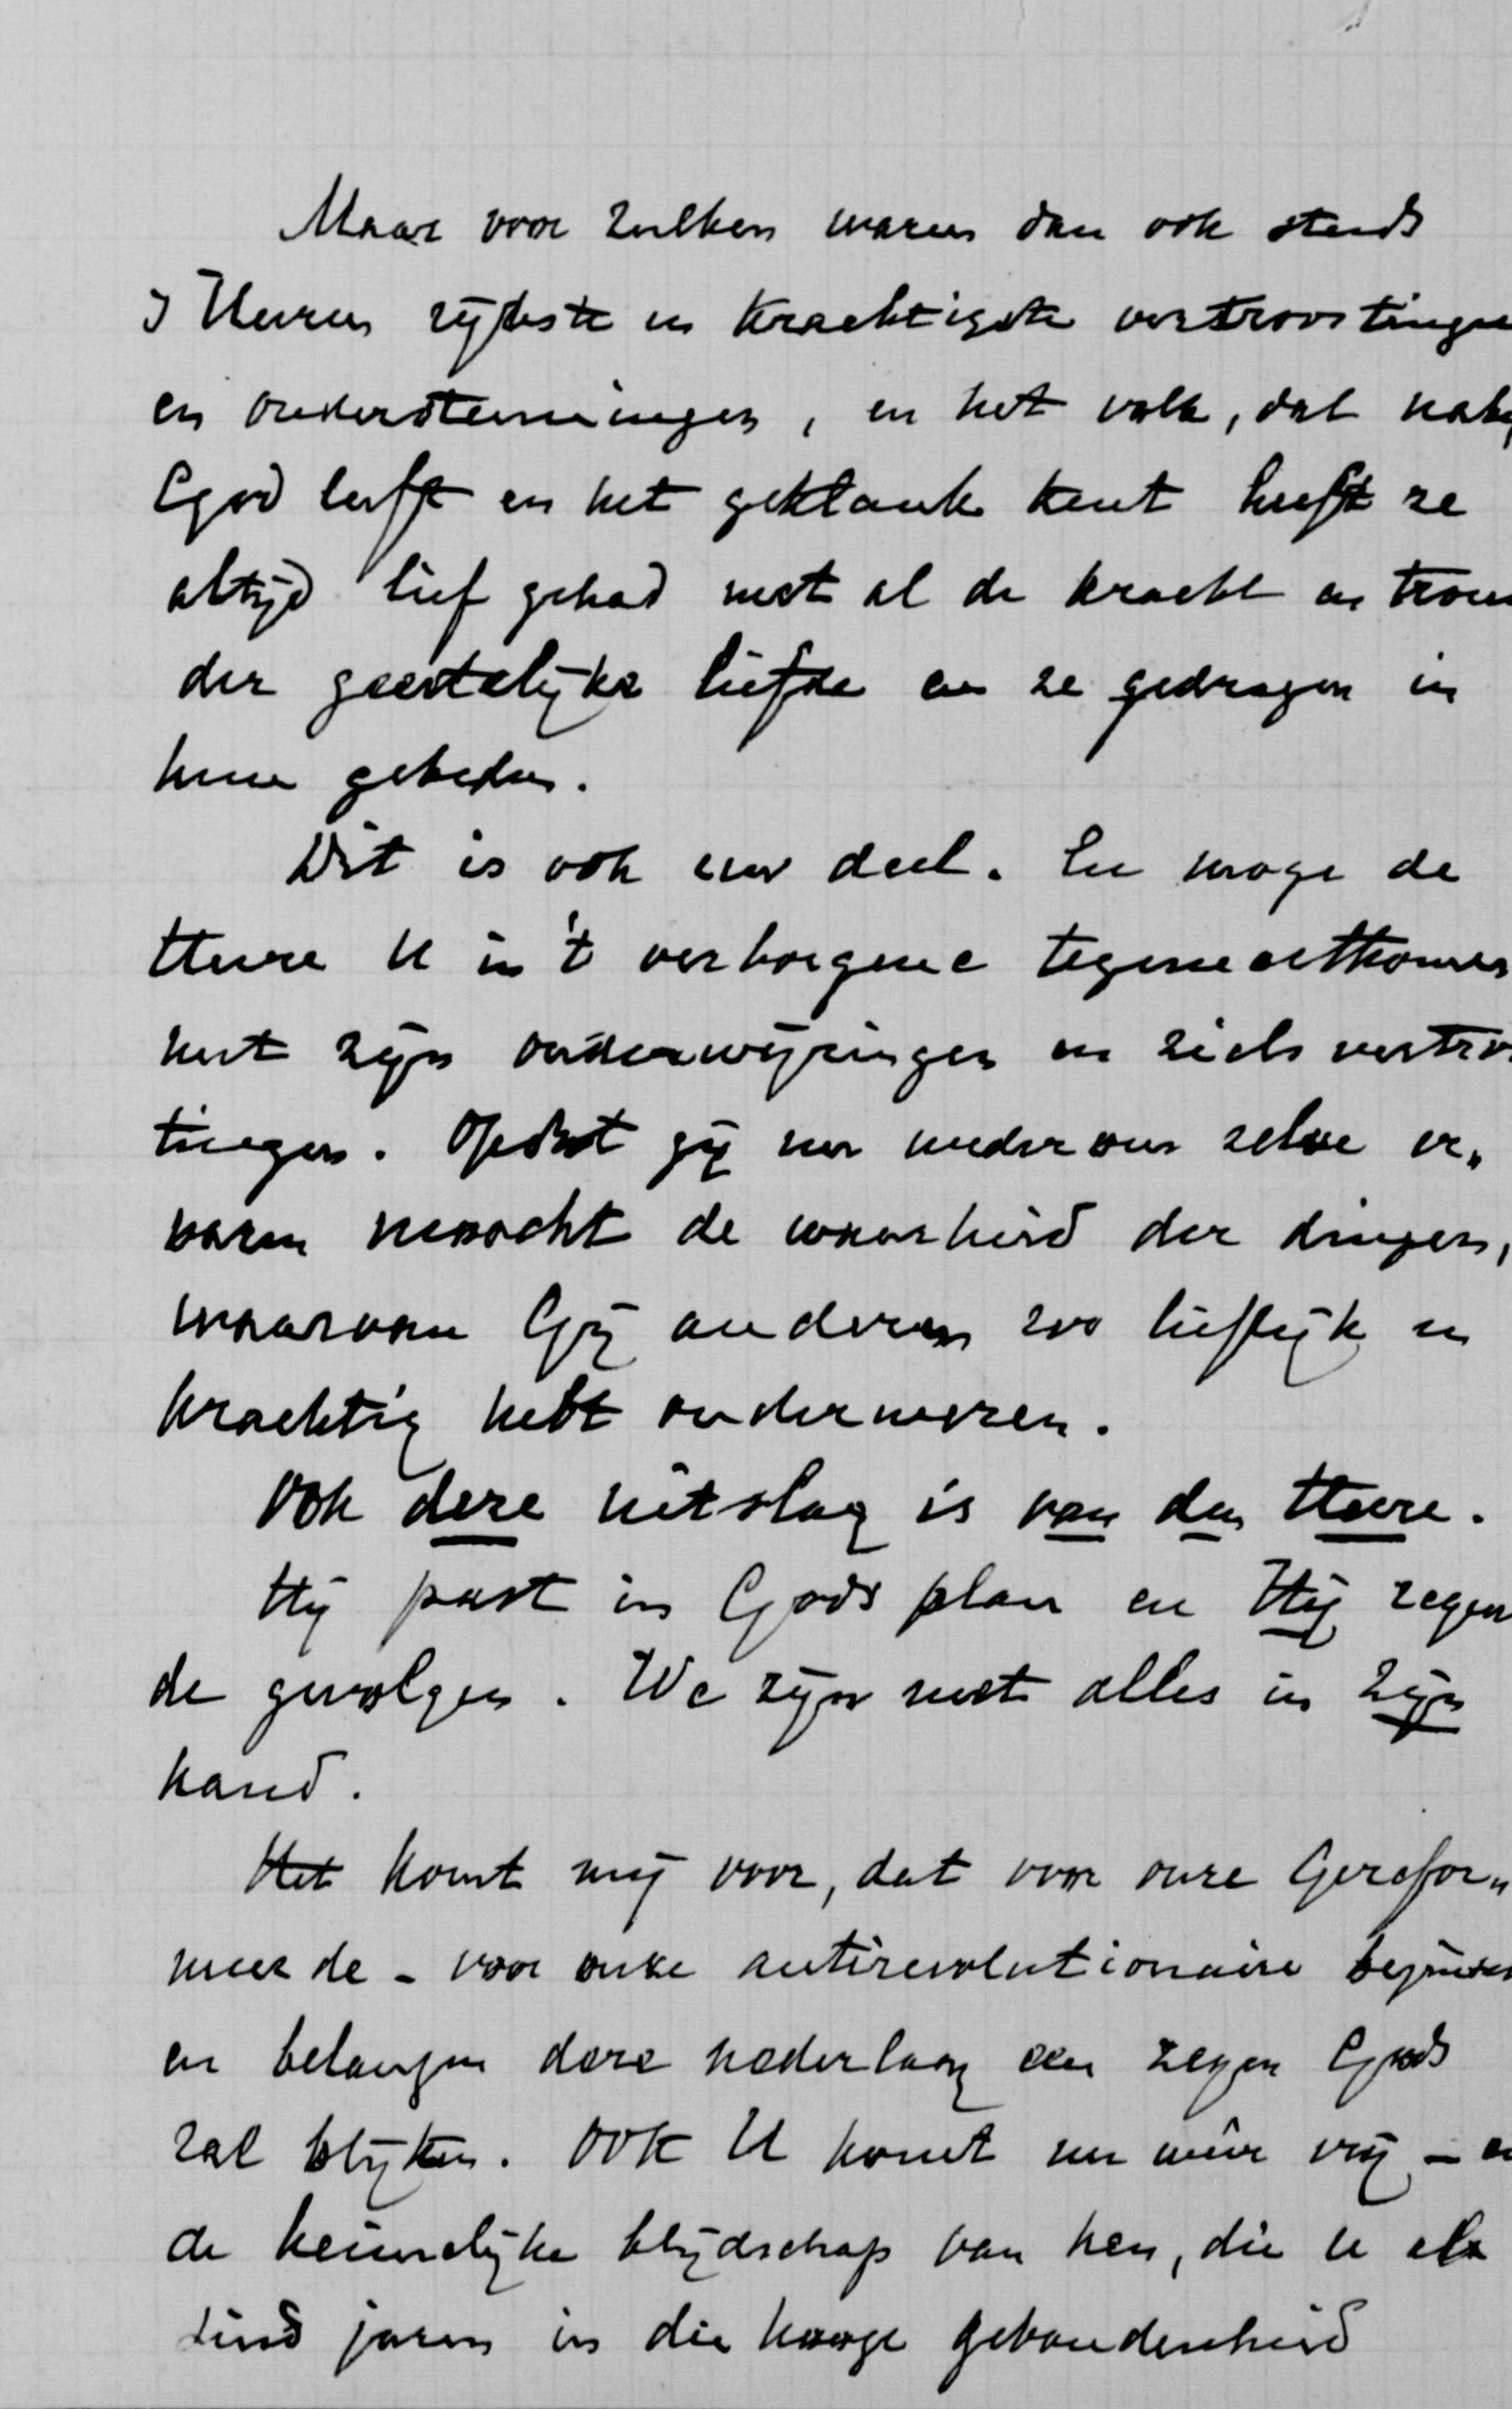 Maar voor zulken waren dan ook steeds
's Heeren rijkste en krachtigste vertroostingen
en ondersteuningen, en het volk, dat naby
God leeft en het geklank kent heeft ze
altijd lief gehad met al de kracht en trouw
der geestelijke liefde en ze gedragen in
hun gebeden.
Dit is ook uw deel. En moge de
Heere U in 't verborgene tegemoetkomen
met zijn onderwijzingen en zielsvertroos
tingen. Opdat gij nu wederom zelve er„
varen moocht de waarheid der dingen,
waarvan Gij anderen zoo lieflijk en
krachtig hebt onderwezen.
Ook deze uitslag is van den Heere.
Hij past in Gods plan en Hij zegen
de gevolgen. We zijn met alles in Zijn
hand.
Het komt mij voor, dat voor onze Gerefor„
meerde - voor onze antirevolutionaire beginselen
en belangen deze nederlaag een zegen Gods
zal blijken. Ook U komt nu weer vrij - en
de heimelijke blijdschap van hen, die U als
sinds jaren in die hooge gebondenheid